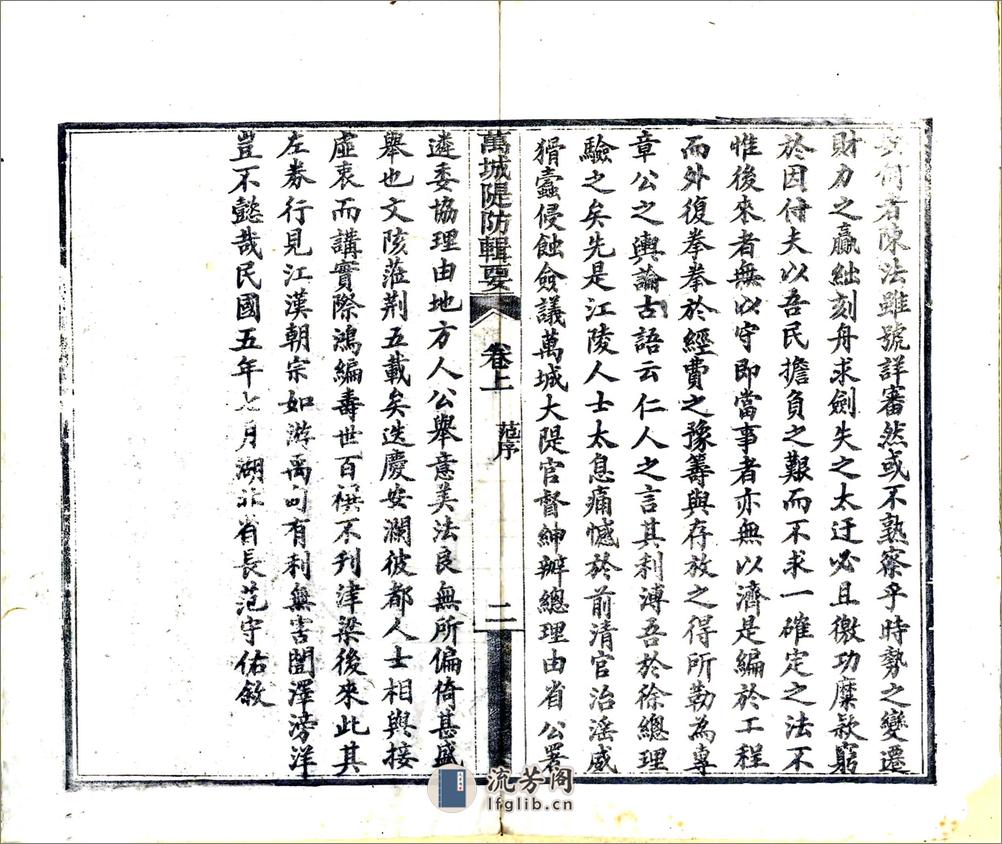 者陳法雖號詳審然或不熟察乎時勢之變遷
財力之贏絀刻舟求劍失之太迂必且徼功糜款窮
於因付夫以吾民擔負之艱而不求一確定之法不
惟後來者無以守即當事者亦無以濟是編於工程
而外復拳拳於經費之豫籌與存放之得所勒為專
章公之輿論古語云仁人之言其利溥吾於徐總理
驗之矣先是江陵人士太息痛憾於前清官治滛威
猾蠹侵蝕僉議萬城大隄官督紳辦總理由省公署
萬城隄防輯要
卷上
范序
二
遴委協理由地方人公舉意美法良無所偏倚甚盛
舉也文陔蒞荆五載矣迭慶安瀾彼都人士相與接
虛衷而講實際鴻編壽世百禩不刋津梁後來此其
左券行見江漢朝宗如游禹甸有利無害闓澤滂洋
豈不懿哉民國五年七月湖北省長范守佑敘
流芳阁
lfglib.cn